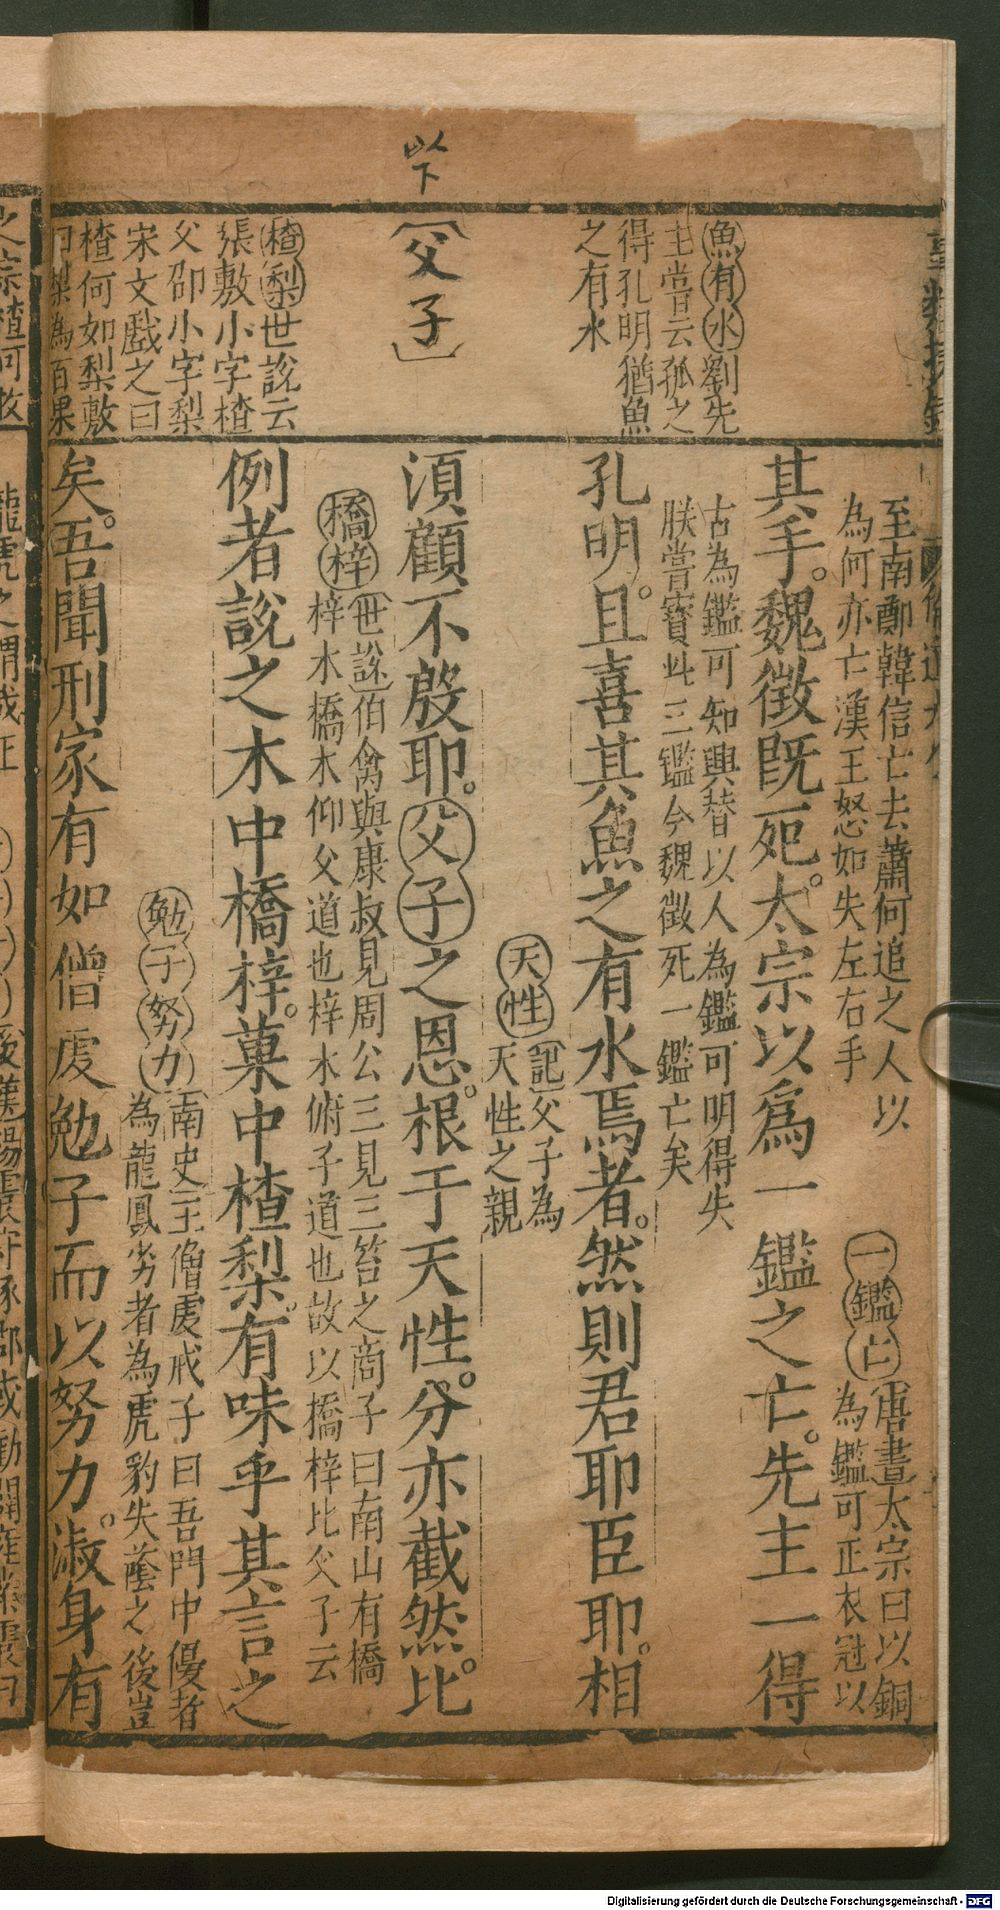 以下
魚有水劉先
主嘗云孤之
得孔明猶魚
之有水
〔父子〕
樝梨世說云
張敷小字樝
父邵小字梨
宋文戲之曰
樝何如梨敷
曰梨為百果
至南鄭韓信亡去蕭何追之人以
為何亦亡漢王怒如失左右手
一鑑亡〔唐書〕太宗曰以銅
為鑑可正衣冠以
其手。魏徵既死。太宗以爲一鑑之亡。先主一得
古為鑑可知興替以人為鑑可明得失
朕嘗寶此三鑑今魏徵死一鑑亡矣
孔明。且喜其魚之有水焉者。然則君耶臣耶。相
天性〔記〕父子為
天性之親
須顧不慇耶。父子之恩。根于天性。分亦截然。比
橋梓〔世說〕伯禽與康叔見周公三見三笞之商子曰南山有橋
梓木橋木仰父道也梓木俯子道也故以橋梓比父子云
例者說之木中橋梓。菓中樝梨。有味乎其言之
勉子努力〔南史〕王僧虔戒子曰吾門中優者
為龍鳳劣者為虎豹失蔭之後豈
矣。吾聞刑家有如僧虔勉子而以努力。淑身有